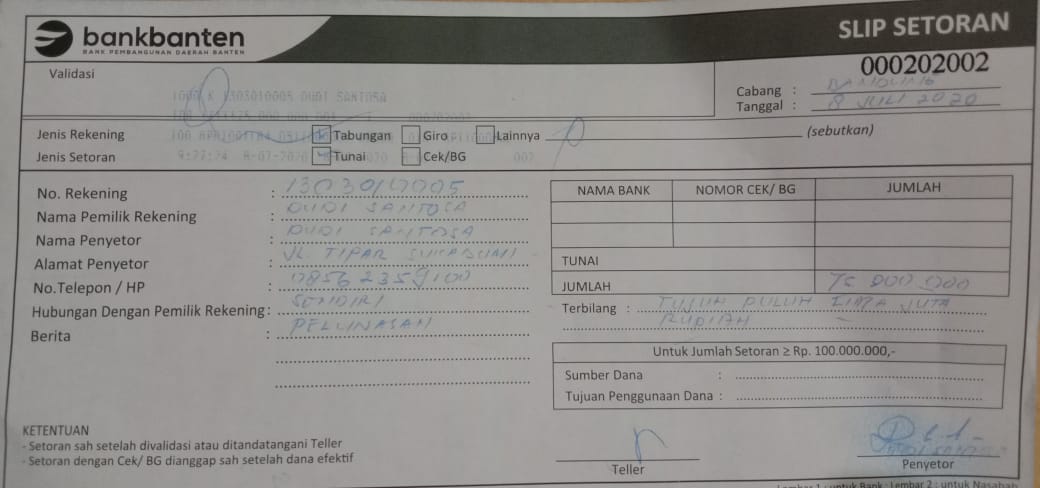 bankbanten
BANK PEMBANGUNAN DAERAH BANTEN
SLIP SETORAN
000202002
Validasi
1303010005 DUDI SANTOSA
Cabang : BANDUNG
Tanggal : 8 JULI 2020
Jenis Rekening Tabungan Giro Lainnya (sebutkan)
Jenis Setoran Tunai Cek/BG
No. Rekening : 1303010005
Nama Pemilik Rekening : DUDI SANTOSA
Nama Penyetor : DUDI SANTOSA
Alamat Penyetor : JL TIPAR SUKABUMI
No.Telepon / HP : 08562359100
Hubungan Dengan Pemilik Rekening : SENDIRI
Berita : PELUNASAN
NAMA BANK NOMOR CEK/ BG JUMLAH
TUNAI
JUMLAH 75 000 000
Terbilang : TUJUH PULUH LIMA JUTA
RUPIAH
Untuk Jumlah Setoran ≥ Rp. 100.000.000,-
Sumber Dana :
Tujuan Penggunaan Dana :
KETENTUAN
- Setoran sah setelah divalidasi atau ditandatangani Teller
- Setoran dengan Cek/ BG dianggap sah setelah dana efektif
Teller
Penyetor
Lembar 1 : untuk Bank Lembar 2 : untuk Nasabah